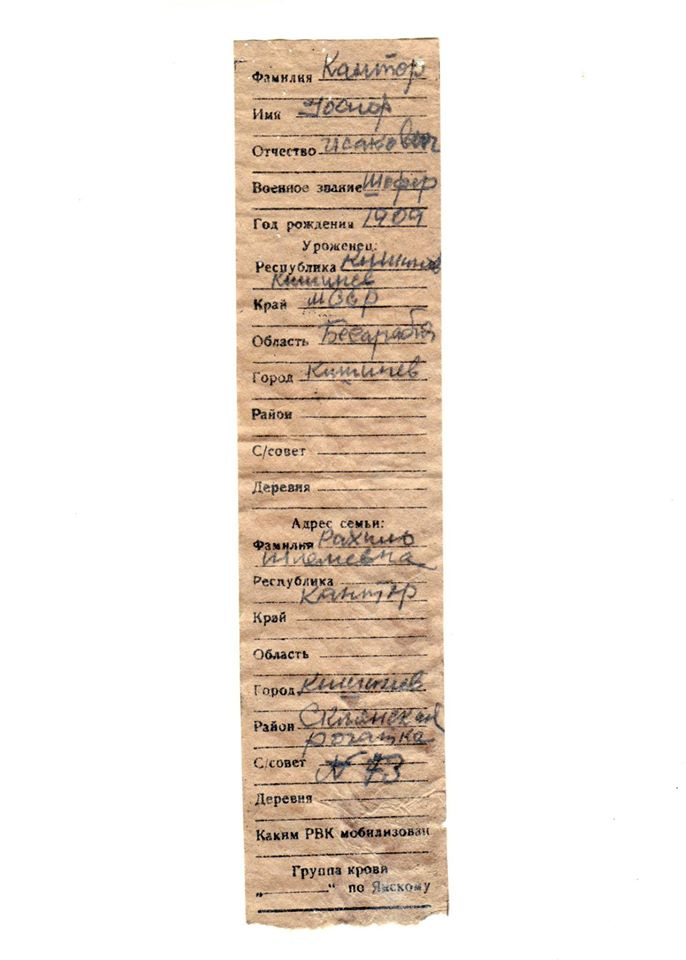 Фамилия Кантор
Имя
Отчество Исакович
Военное звание Шофер
Год рождения 1909
Уроженец:
Республика Кишинев
Кишинев
Край МССР
Область Бесарабия
Город Кишинев
Район
С/совет
Деревня
Адрес семьи:
Фамилия Рахиль
Шлемевна
Республика
Кантор
Край
Область
Город Кишинев
Район Склянская
рогатка
С/совет N 73
Деревня
Каким РВК мобилизован
Группа крови
„ “ по Янскому